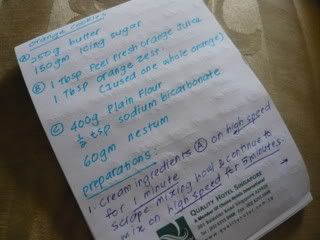 orange cookies
Ⓐ 250g butter
150gm Icing sugar
Ⓑ 1 Tbsp Peel fresh orange juice
1 Tbsp orange zest.
(I used one whole orange)
Ⓒ 400g Plain Flour
½ tsp sodium bicarbonate
60gm nestum
preparations:
1. Cream ingredients Ⓐ on high speed
for 1 minute
scrape mixing bowl & continue to
mix on high speed for 5 minutes.
QUALITY HOTEL SINGAPORE